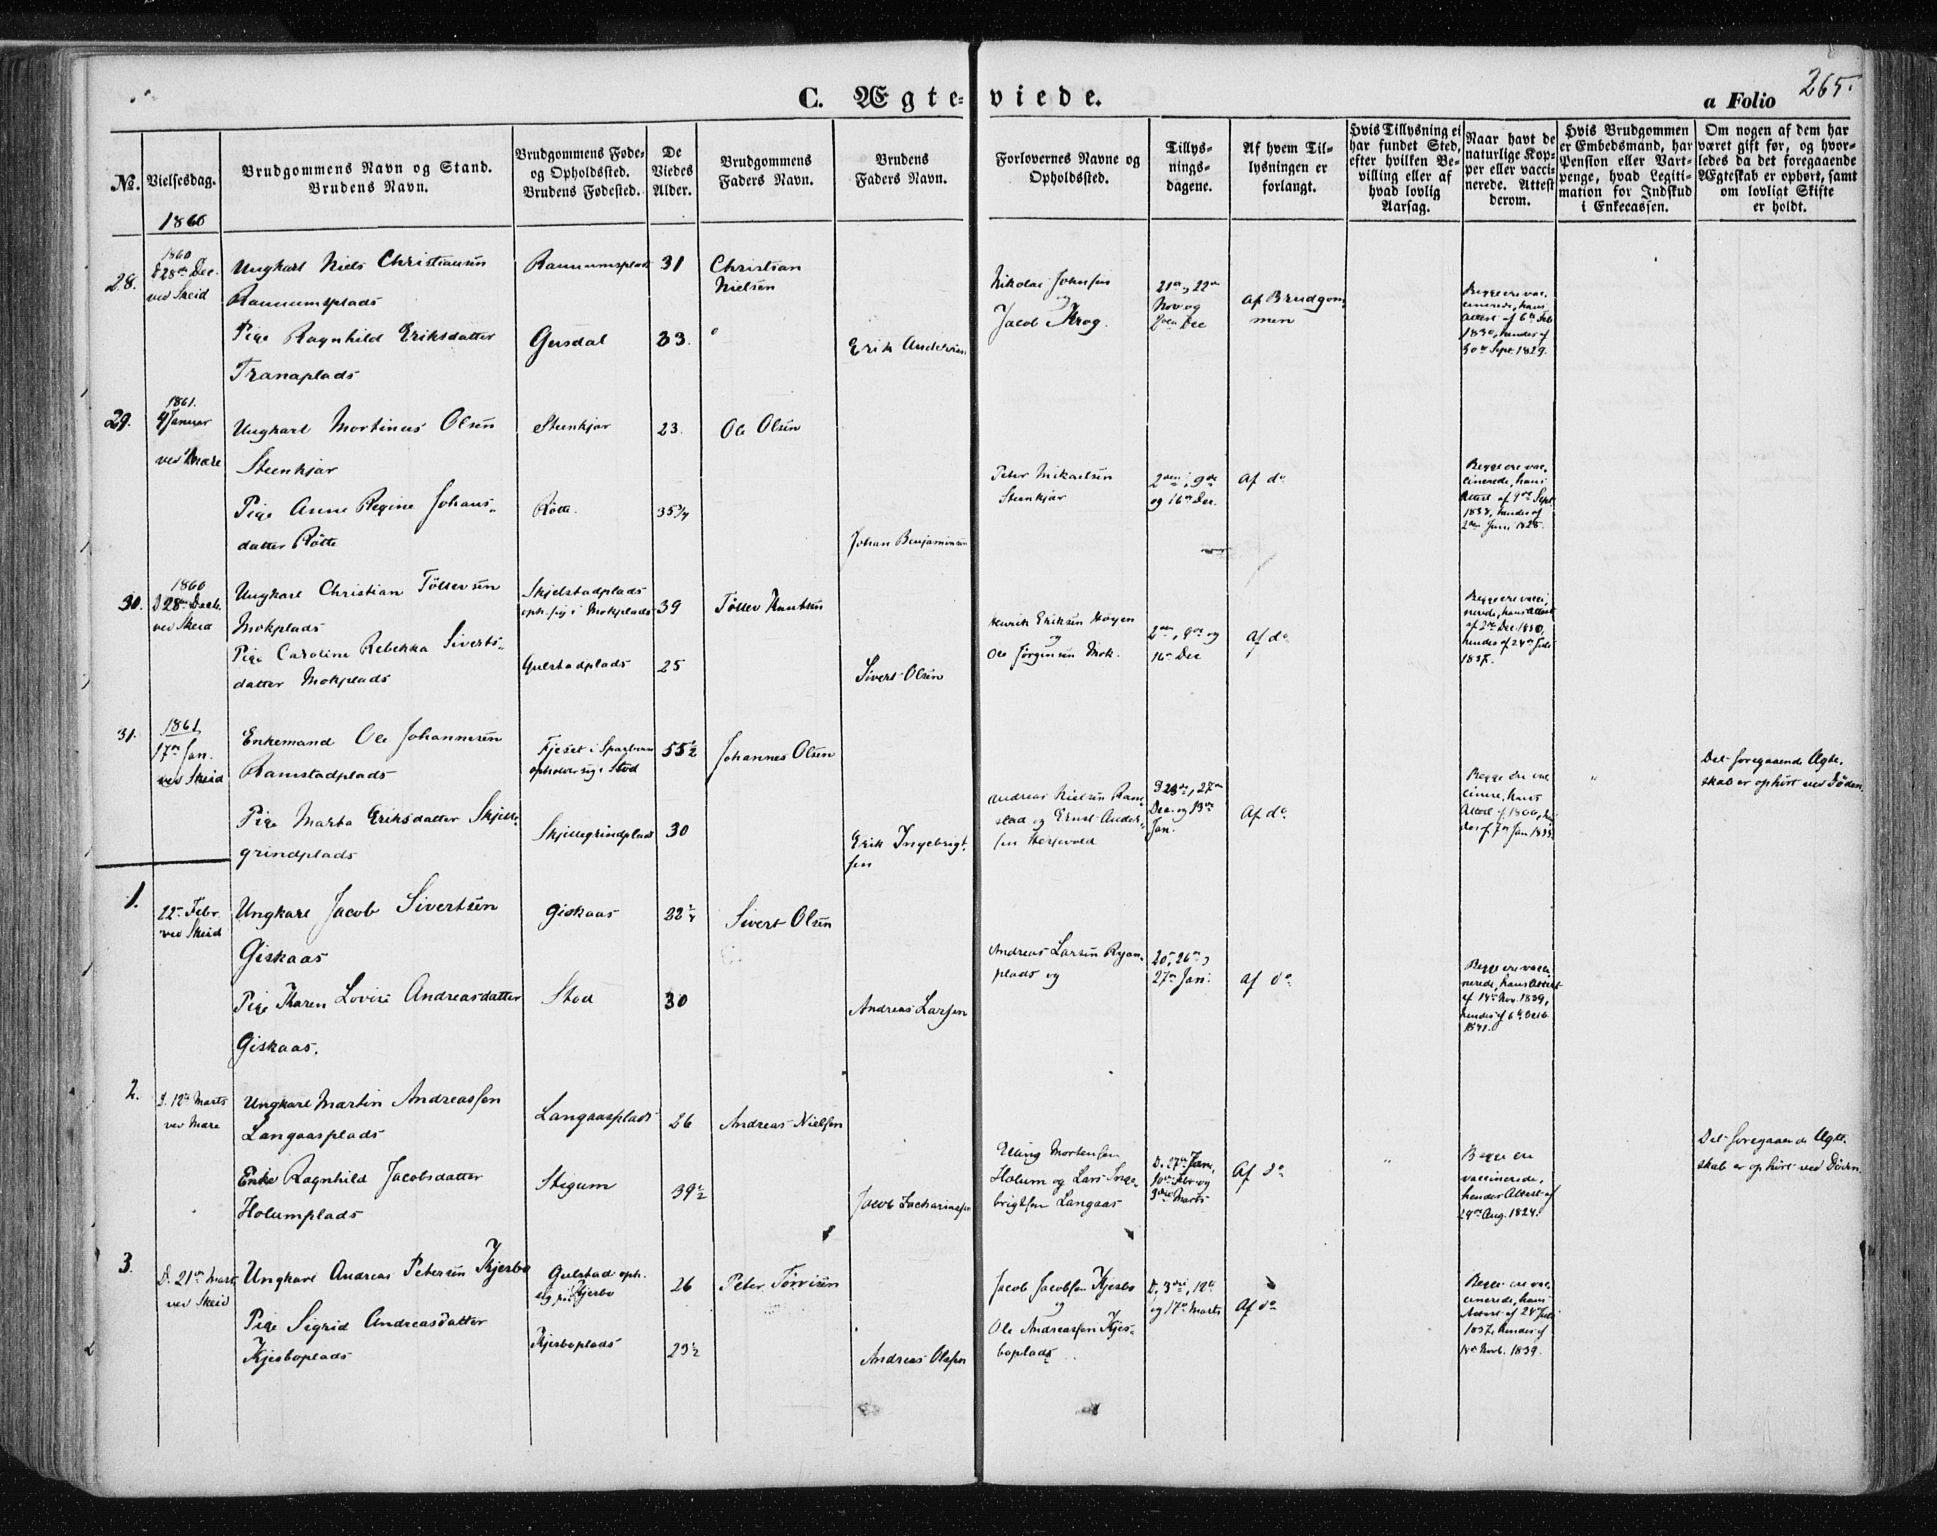 265.
C. Ægte-viede.
a Folio
No.
Vielsesdag.
Brudgommens Navn og Stand.
Brudens Navn.
Brudgommens Føde-
og Opholdssted.
Brudens Fødested.
De
Viedes
Alder.
Brudgommens
Faders Navn.
Brudens
Faders Navn.
Forlovernes Navne og
Opholdssted.
Tillys-
nings-
dagene.
Af hvem Til-
lysningen er
forlangt.
Hvis Tillysning ei
har fundet Sted,
efter hvilken Be-
villing eller af
hvad lovlig
Aarsag.
Naar havt de
naturlige Kop-
per eller vacci-
nerede. Attest
derom.
Hvis Brudgommen
er Embedsmand, har
Pension eller Vart-
penge, hvad Legiti-
mation for Indskud
i Enkecassen.
Om nogen af dem har
været gift før, og hvor-
ledes da det foregaaende
Ægteskab er ophørt, samt
om lovligt Skifte
er holdt.
1860
28.
1860
28de Dec.
ved Skeid
Ungkarl Niels Christiansen
Raumumsplads
Pige Ragnhild Eriksdatter
Tranaplads
Raumumsplads
Gersdal
31
33
Christian
Nielsen
Erik Andersen
Nikolai Johnsen
og
Jacob Krog.
21de, 22de
Nov og
2den Dec
Af Brudgom-
men
Begge ere vac-
cinerede, hans
Attest af 6te Feb
1830, hendes af
30te Sept. 1829.
29.
1861.
4 Januar
ved Mære
Ungkarl Mortinus Olsen
Steenkjær
Pige Anne Regine Johans-
datter Røtte
Steenkjær
Røtte.
23.
35 3/4
Ole Olsen
Johan Benjaminsen
Peter Mikaelsen
Steenkjær
2den, 9de
og 16de Dec.
Af do
Begge ere vac-
cinerede, hans
Attest af 9de Sept
1838, hendes af
2den Juni 1828.
30.
1860
D 28de Decb.
ved Skeid
Ungkarl Christian Tollevsen
Mokplads
Pige Caroline Rebekka Siverts-
datter Mokplads
Skjelstadplads
oph. sig i Mokplads
Gulstadplads
39
25
Tollev Knutsen
Sivert Olsen
Henrik Eriksen Høyem
og
Ole Jørgensen Mok.
2den, 9de og
16de Dec
Af do
Begge ere vacci-
nerede, hans Attest
af 2den Dec. 1830,
hendes af 24de Juli
1837.
31.
1861
17de Jan.
ved Skeid
Enkemand Ole Johannesen
Ramstadplads
Pige Marta Eriksdatter Skjelle-
grindplads
Fjeset i Sparbuen
opholder sig i Stod
Skjellegrindplads
55 1/2
30
Johannes Olsen
Erik Ingebrigt-
sen
Andreas Nielsen Ram-
stad og Ernst Ander-
sen
D 23de, 27de
Dec. og 13de
Jan.
Af do
Begge ere vac-
cinere, hans
Attest af 1806, hen-
des af 7de Jan. 1833.
Det foregaaende Ægte-
skab er ophørt ved Døden.
1.
22de Febr.
ved Skeid
Ungkarl Jacob Sivertsen
Giskaas
Pige Karen Lovise Andreasdatter
Giskaas.
Giskaas
Stod
22 1/4
30
Sivert Olsen
Andreas Larsen
Andreas Larsen Ryan-
plads og
20de, 26de og
27de Jan.
Af do
Begge ere vacci-
nerede, hans Attest
af 14de Nov. 1839,
hendes af 6te Octb.
1841.
2.
D. 12te Marts
ved Mære
Ungkarl Martin Andreassen
Langaasplads
Enke Ragnhild Jacobsdatter
Holumplads
Langaasplads
Stigum
26
39 1/2
Andreas Nielsen
Jacob Zachariassen
Elling Mortensen
Holum og Lars Inge-
brigtsen Langaas
D. 27de Jan,
10de Febr og
3die Marts
Af do
Begge ere
vaccinerede,
hendes Attest af
24de Aug. 1824.
Det foregaaende Ægte-
skab er ophørt ved Døden.
3.
D. 21de Marts
ved Skeid
Ungkarl Andreas Petersen Kjesbo
Pige Sigrid Andreasdatter
Kjesboplads
Gulstad oph.
sig paa Kjesbo
Kjesboplads
26
29 1/2
Peter Torrisen
Andreas Olsen
Jacob Jacobsen Kjesbo
og
Ole Andreassen Kjes-
boplads
D. 3die, 12te
og 17de Marts
Af do
Begge ere vac-
cinerede, hans
Attest af 24de Juli
1837, hendes af
Novb. 1839.